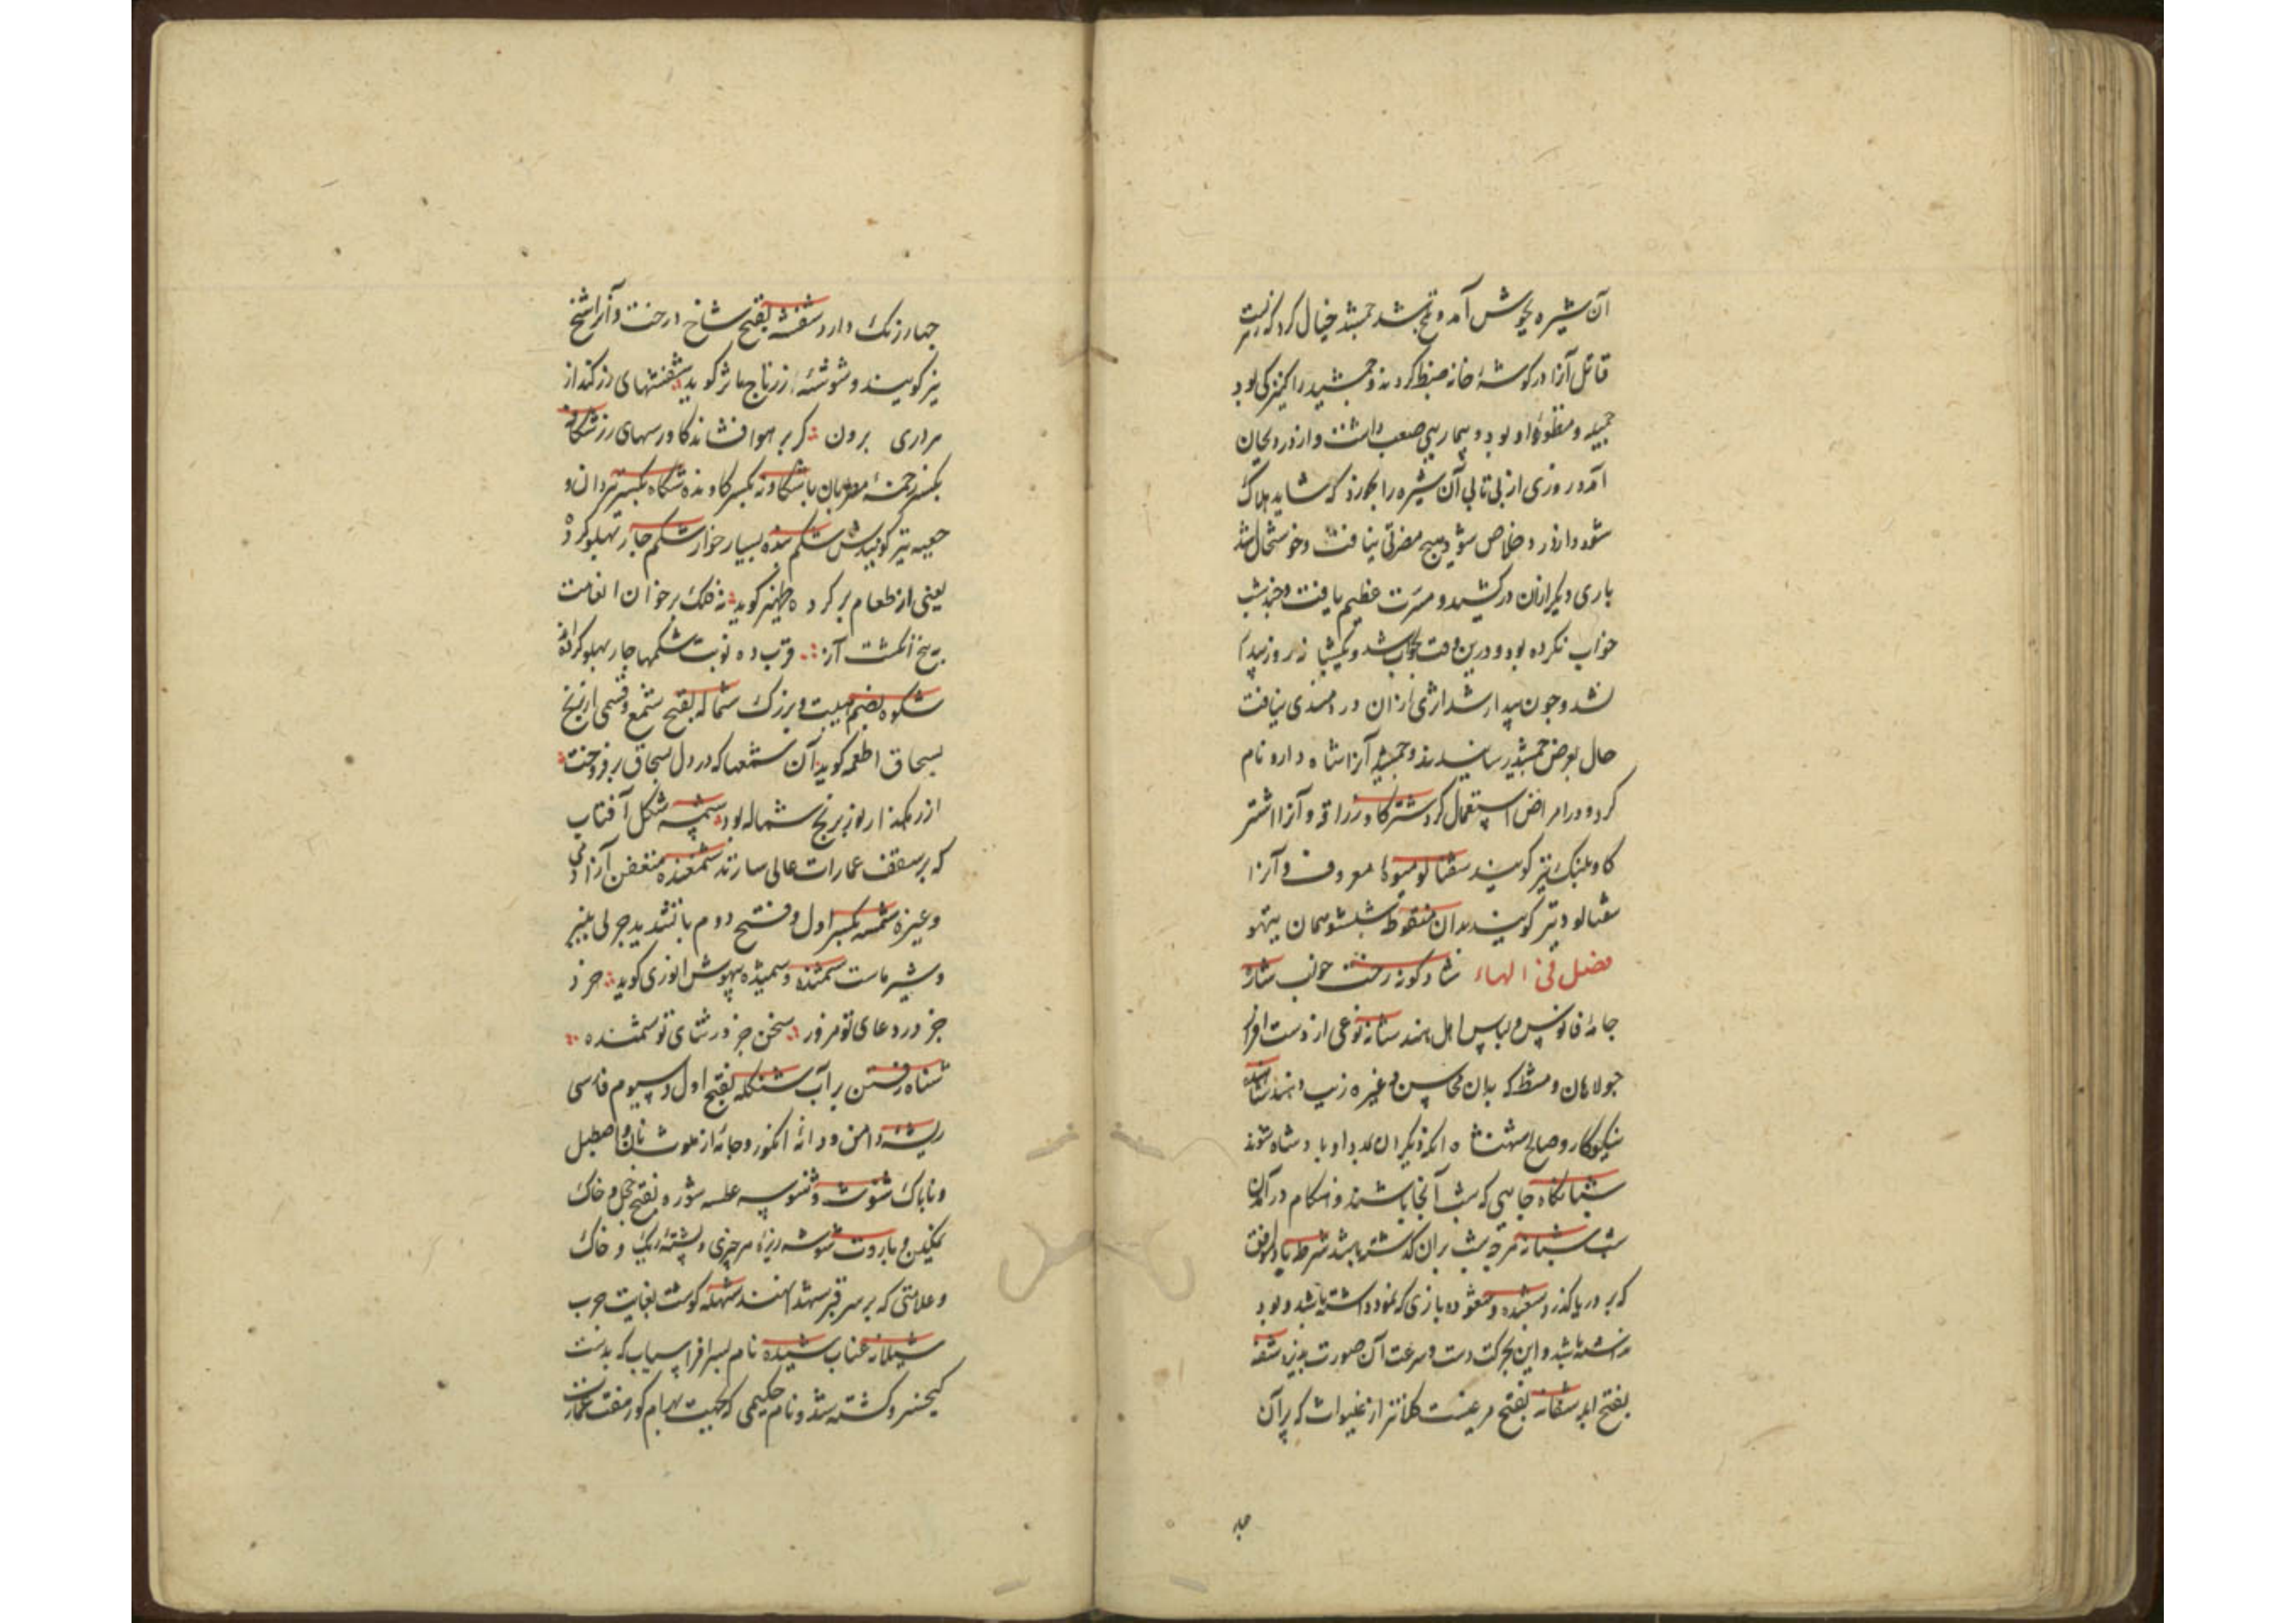 آن شیره بجوش آمد و تلخ شد جمشید خیال کرد که زهریست
قاتل آنرا در کوشهٔ خانه ضبط کردند و جمشید را کنیزکی بود
جمیله و منظورهٔ او بود و بیماریی صعب داشت و از درد بجان
آمد و روزی از بی تابی آن شیره را بخورد که شاید هلاک
شود و از درد خلاص شود هیچ مضرتی نیافت و خوشحال شد
باری دیکر ازان درکشید و مسرت عظیم یافت و چند شب
خواب نکرده بود و درین وقت بخواب شد و یکشبانه روز بیدار
نشد و چون بیدار شد اثری ازان دردمندی نیافت
حال بعرض جمشید رسانیدند و جمشید آنرا شاه دارو نام
کرد و در امراض استعمال کرد شترکاو زرافه و آنرا اشتر
کاو پلنک نیز کویند شفتالو میوهٔ معروف و آنرا
شفتالود نیز کویند
فصل فی الهاء شادکونه رخت خواب شاره
جامهٔ فانوس و لباس اهل هند شانه نوعی از دست افزار
جولاهان و مشط که بدان محاسن و غیره زیب دهند
نیکوکار و صالح شهنشاه انکه دیکران بمدد او بادشاه شوند
شبانکاه جایی که شب آنجا باشند و هنکام درآمدن
شب شبانه هرچه شب بران کذشته باشد شرطه باد موافق
که بر دریا کذرد شعبده و شعوذه بازی که نمود داشته باشد و بود
نداشته باشد و این بحرکت دست و سرعت آن صورت پذیرد شفه
بفتح شفانه بفتح مرغیست کلانتر از غلیواج که پر آن
چهار رنک دارد شفشه بفتح شاخ درخت و آنرا شخ
نیز کویند و شوشهٔ زر تاج مآثر کوید شفشهای زر کند از
مرداری برون کر بر هوا فشاند کاورسهای زر شکافه
بکسر زخمهٔ مطربان باشد شکاونه بکسر کاونده شکاه بکسر تیردان و
جعبهٔ تیر کویندش شکم بنده بسیار خوار شکم چار پهلو کرده
یعنی از طعام پر کرده ظهیر کوید نه فلک بر خوان انعامت
پنج انکشت آز قرب ده نوبت شکمها چار پهلو کرده اند
شکوه بضم هیبت و بزرکی شماله بفتح شمع و قسمی از برنج
بسحاق اطعمه کوید آن شمعها که در دل بسحاق برفروخت
از رهکذار نور برنج شماله بود شمسه شکل آفتاب
که بر سقف عمارات عالی سازند شمغنده متعفن آنرا
و غیره شمه بکسر اول و فتح دوم با تشدید چربی پنیر
و شیر ماست شمنده و شمیده بیهوش انوری کوید خرد
جز در دعای تو مزور سخن جز در ثنای تو شمنده
شناه رفتن بر آب شنکله بفتح اول و سیوم فارسی
ریشهٔ دامن و دانهٔ انکور و جامهٔ از
و ناپاک شنوشه و شنوسه عطسه شوره بفتح خجل و خاک
نمکین و باروت شوشه ریزهٔ هر چیزی و پشتهٔ ریک و خاک
و علامتی که بر سر قبر شهدا نهند شهله کوشت بغایت چرب
شیلانه عناب شیده نام پسر افراسیاب که بدست
کیخسرو کشته شد و نام حکیمی که بجهت بهرام کور هفت عمارت